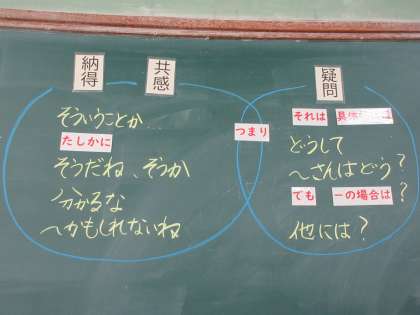 納得
共感
疑問
そういうことか
たしかに
そうだね、そうか
分かるな
〜かもしれないね
つまり
それは
どうして
〜さんはどう?
でも ーの場合は?
他には?